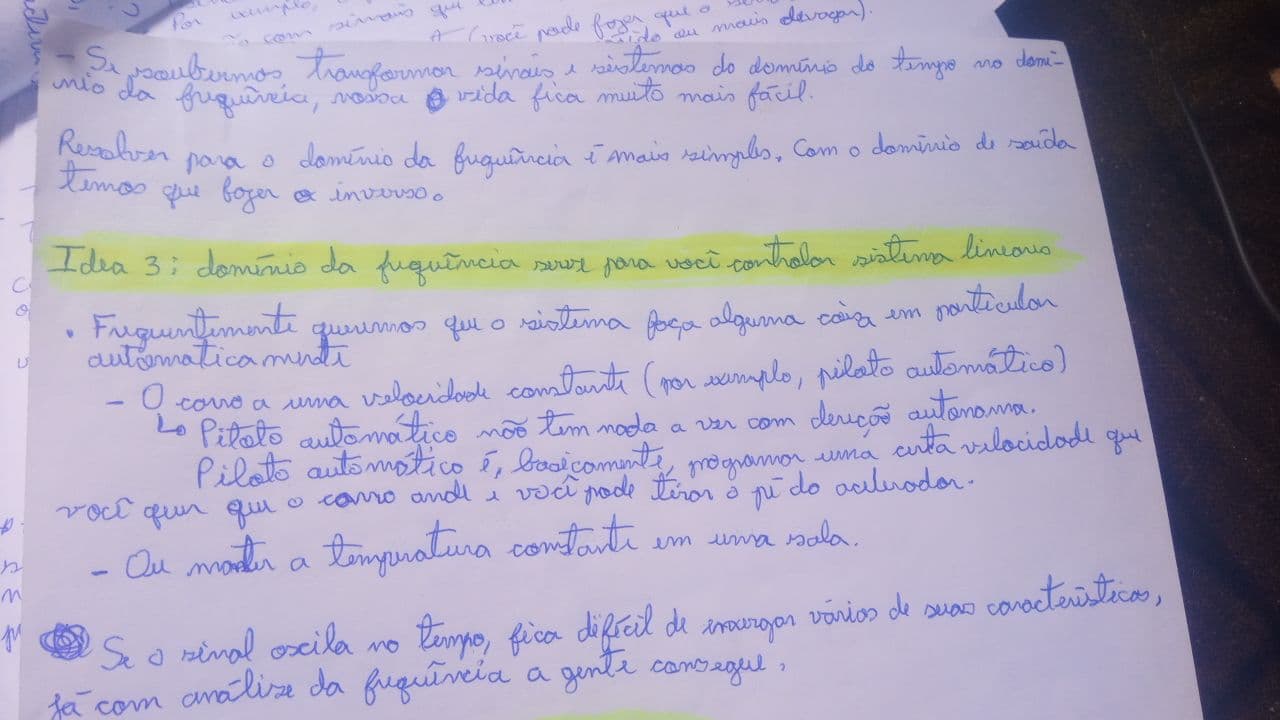 Por exemplo,
com sinais que
(você pode fazer que o
ou mais devagar).
- Se soubermos transformar sinais e sistemas do domínio do tempo no domí-
nio da frequência, nossa vida fica muito mais fácil.
Resolver para o domínio da frequência é mais simples. Com o domínio de saída
temos que fazer o inverso.
Idea 3: domínio da frequência serve para você controlar sistema lineares
• Frequentemente queremos que o sistema faça alguma coisa em particular
automaticamente
- O carro a uma velocidade constante (por exemplo, piloto automático)
↳ Piloto automático não tem nada a ver com dereção autonama.
Piloto automático é, basicamente, programar uma certa velocidade que
você quer que o carro ande e você pode tirar o pé do acelerador.
- Ou manter a temperatura constante em uma sala.
Se o sinal oscila no tempo, fica difícil de enxergar vários de suas características,
já com análize da frequência a gente consegue.